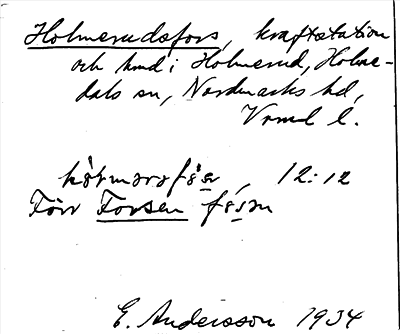 Holmerudsfors, kraftstation
och hmd i Holmerud, Holme-
dals sn, Nordmarks hd,
Vrml l.
12:12
Förr Forsen
E. Andersson 1934